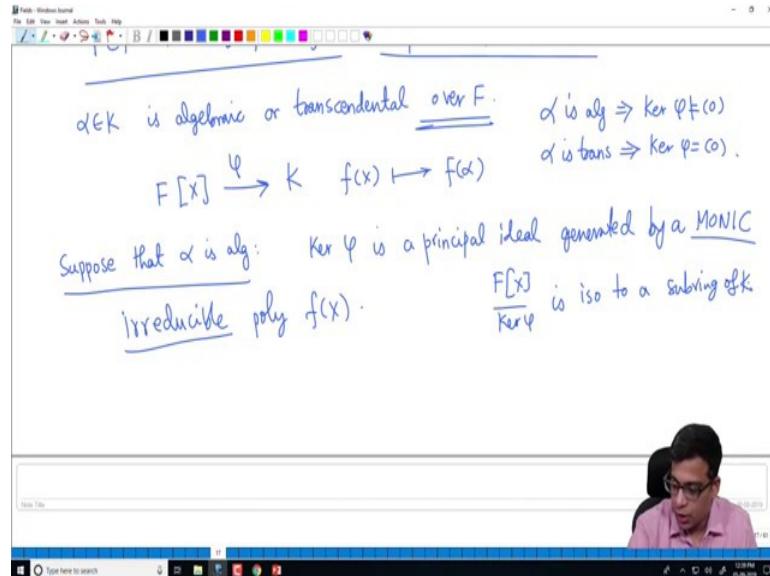 Fields - Windows Journal
File Edit View Insert Actions Tools Help
α∈K is algebraic or transcendental over F.
α is alg ⇒ Ker φ ≠ (0)
α is trans ⇒ Ker φ = (0).
F[X] —φ→ K   f(x) ↦ f(α)
Suppose that α is alg: Ker φ is a principal ideal generated by a MONIC
irreducible poly f(X).
F[X]/Ker φ is iso to a subring of K.
Note Title
17
Type here to search
12:39 PM